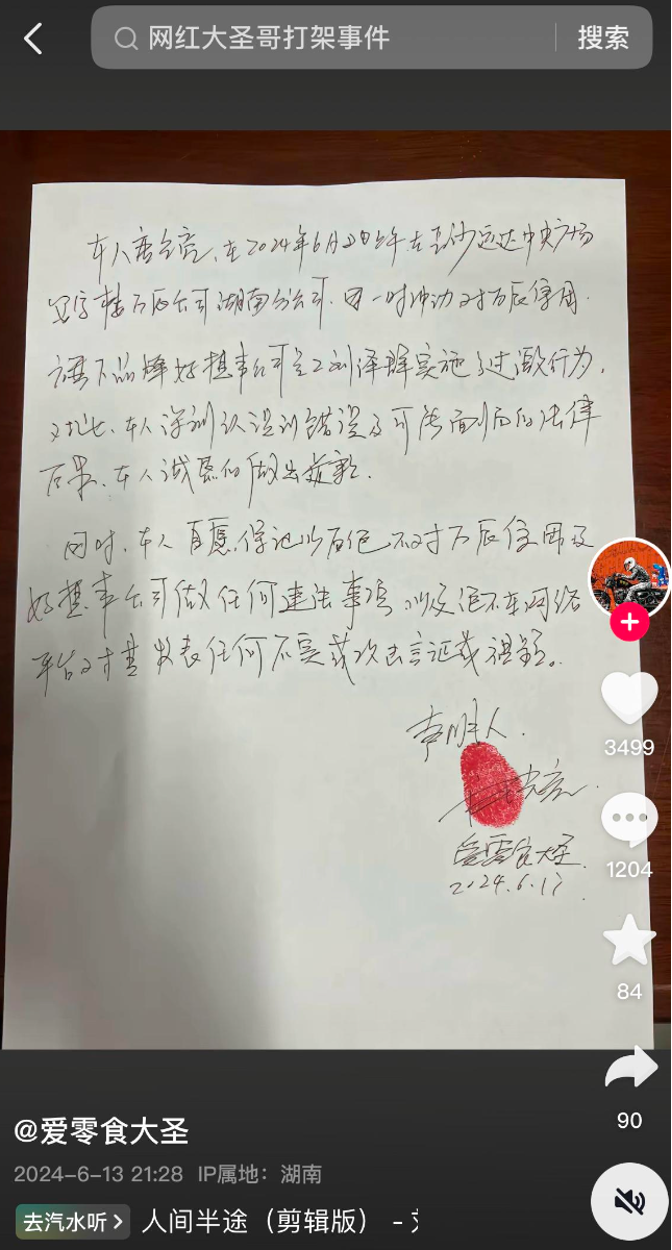 网红大圣哥打架事件
搜索
本人唐 亮，在2024年6月 上午在 远达中央广场
写字楼万辰公司湖南分公司，因一时冲动对万辰集团
旗下品牌好想来公司员工刘泽辉实施了过激行为，
对此，本人深刻认识到错误及可能面临的法律
后果，本人诚恳的做出道歉。
同时，本人自愿保证以后绝不对万辰集团及
好想来公司做任何违法事项，以及绝不在网络
平台对其发表任何不实或攻击言 或视频。
声明人
爱零食大圣
2024.6.1
3499
1204
84
90
@爱零食大圣
2024-6-13 21:28 IP属地：湖南
去汽水听
人间半途（剪辑版） -